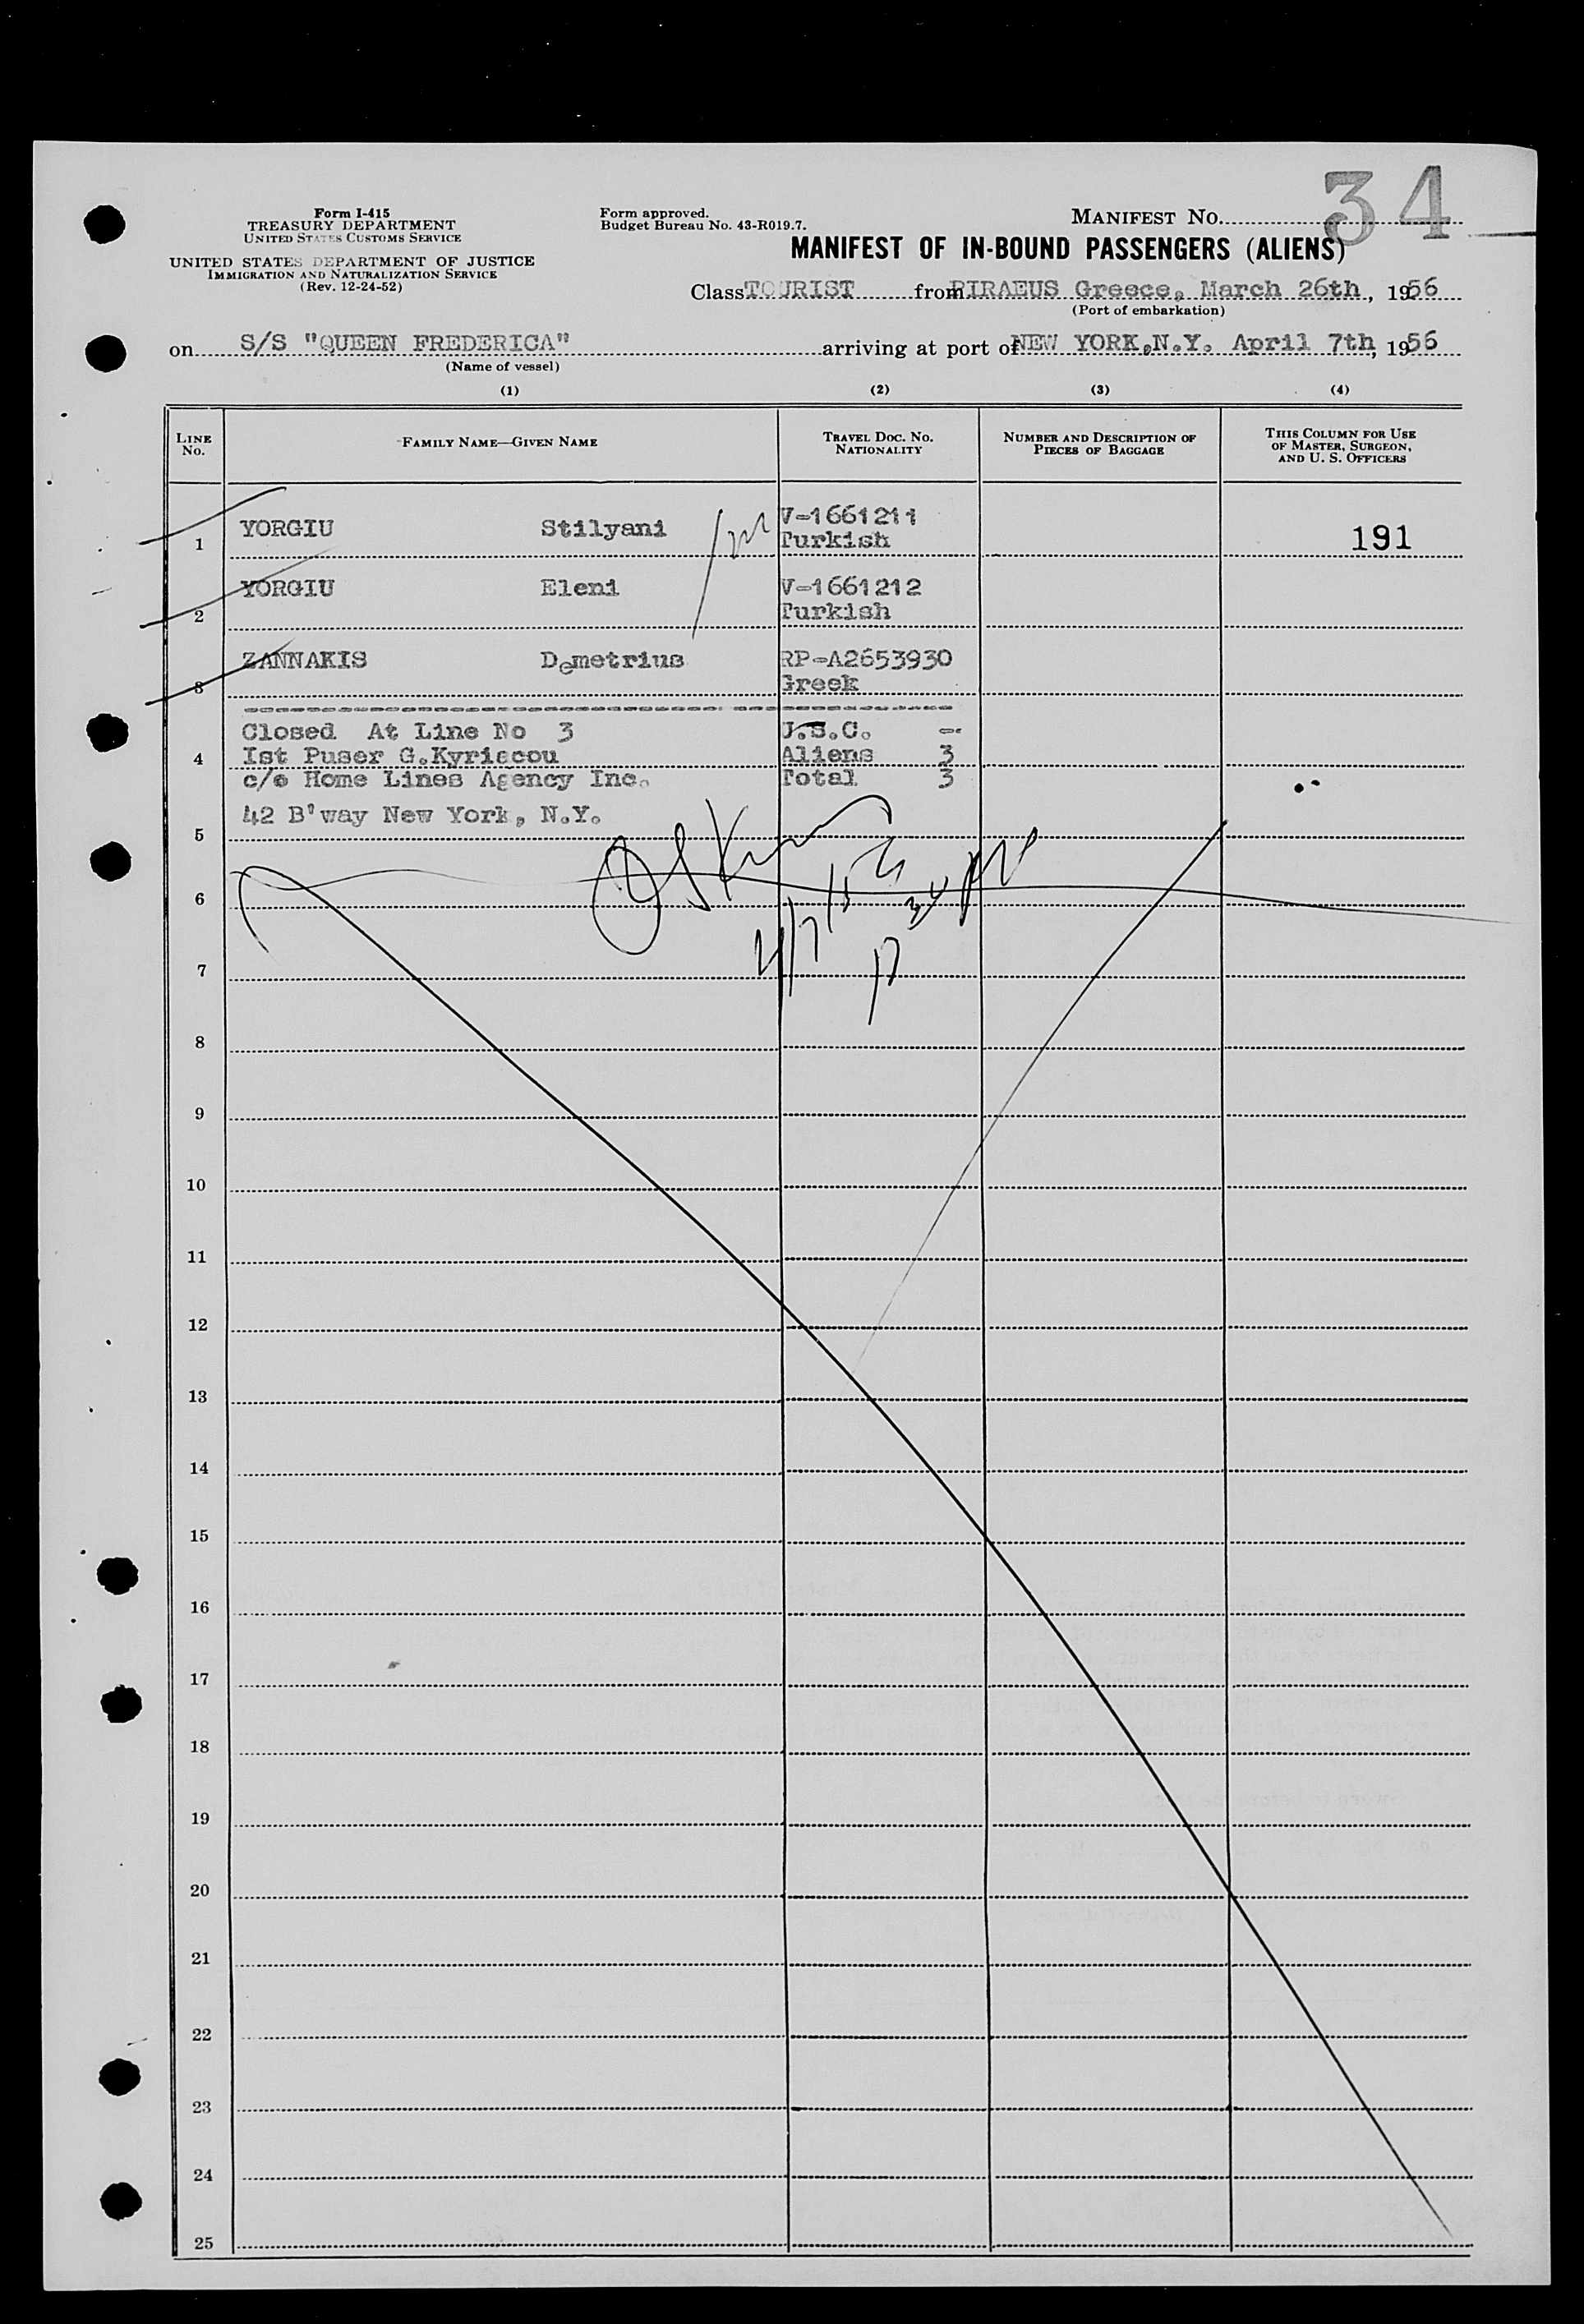 34
Form I-415
TREASURY DEPARTMENT
UNITED STATES CUSTOMS SERVICE
UNITED STATES DEPARTMENT OF JUSTICE
IMMIGRATION AND NATURALIZATION SERVICE
(Rev. 12-24-52)
Form approved.
Budget Bureau No. 43-R019.7.
MANIFEST NO.
MANIFEST OF IN-BOUND PASSENGERS (ALIENS)
Class TOURIST from PIRAEUS Greece, March 26th, 1956
(Port of embarkation)
on S/S "QUEEN FREDERICA" arriving at port of NEW YORK,N.Y. April 7th, 1956
(Name of vessel)
(1) (2) (3) (4)
LINE NO. FAMILY NAME—GIVEN NAME TRAVEL DOC. NO. NATIONALITY NUMBER AND DESCRIPTION OF PIECES OF BAGGAGE THIS COLUMN FOR USE OF MASTER, SURGEON, AND U. S. OFFICERS
1 YORGIU Stilyani V-1661211 Turkish 191
2 YORGIU Eleni V-1661212 Turkish
3 ZANNAKIS Demetrius RP-A2653930 Greek
Closed At Line No 3 U.S.C. --
4 Ist Puser G.Kyriacou Aliens 3
c/o Home Lines Agency Inc. Total 3
42 B'way New York, N.Y.
5
6
7
8
9
10
11
12
13
14
15
16
17
18
19
20
21
22
23
24
25